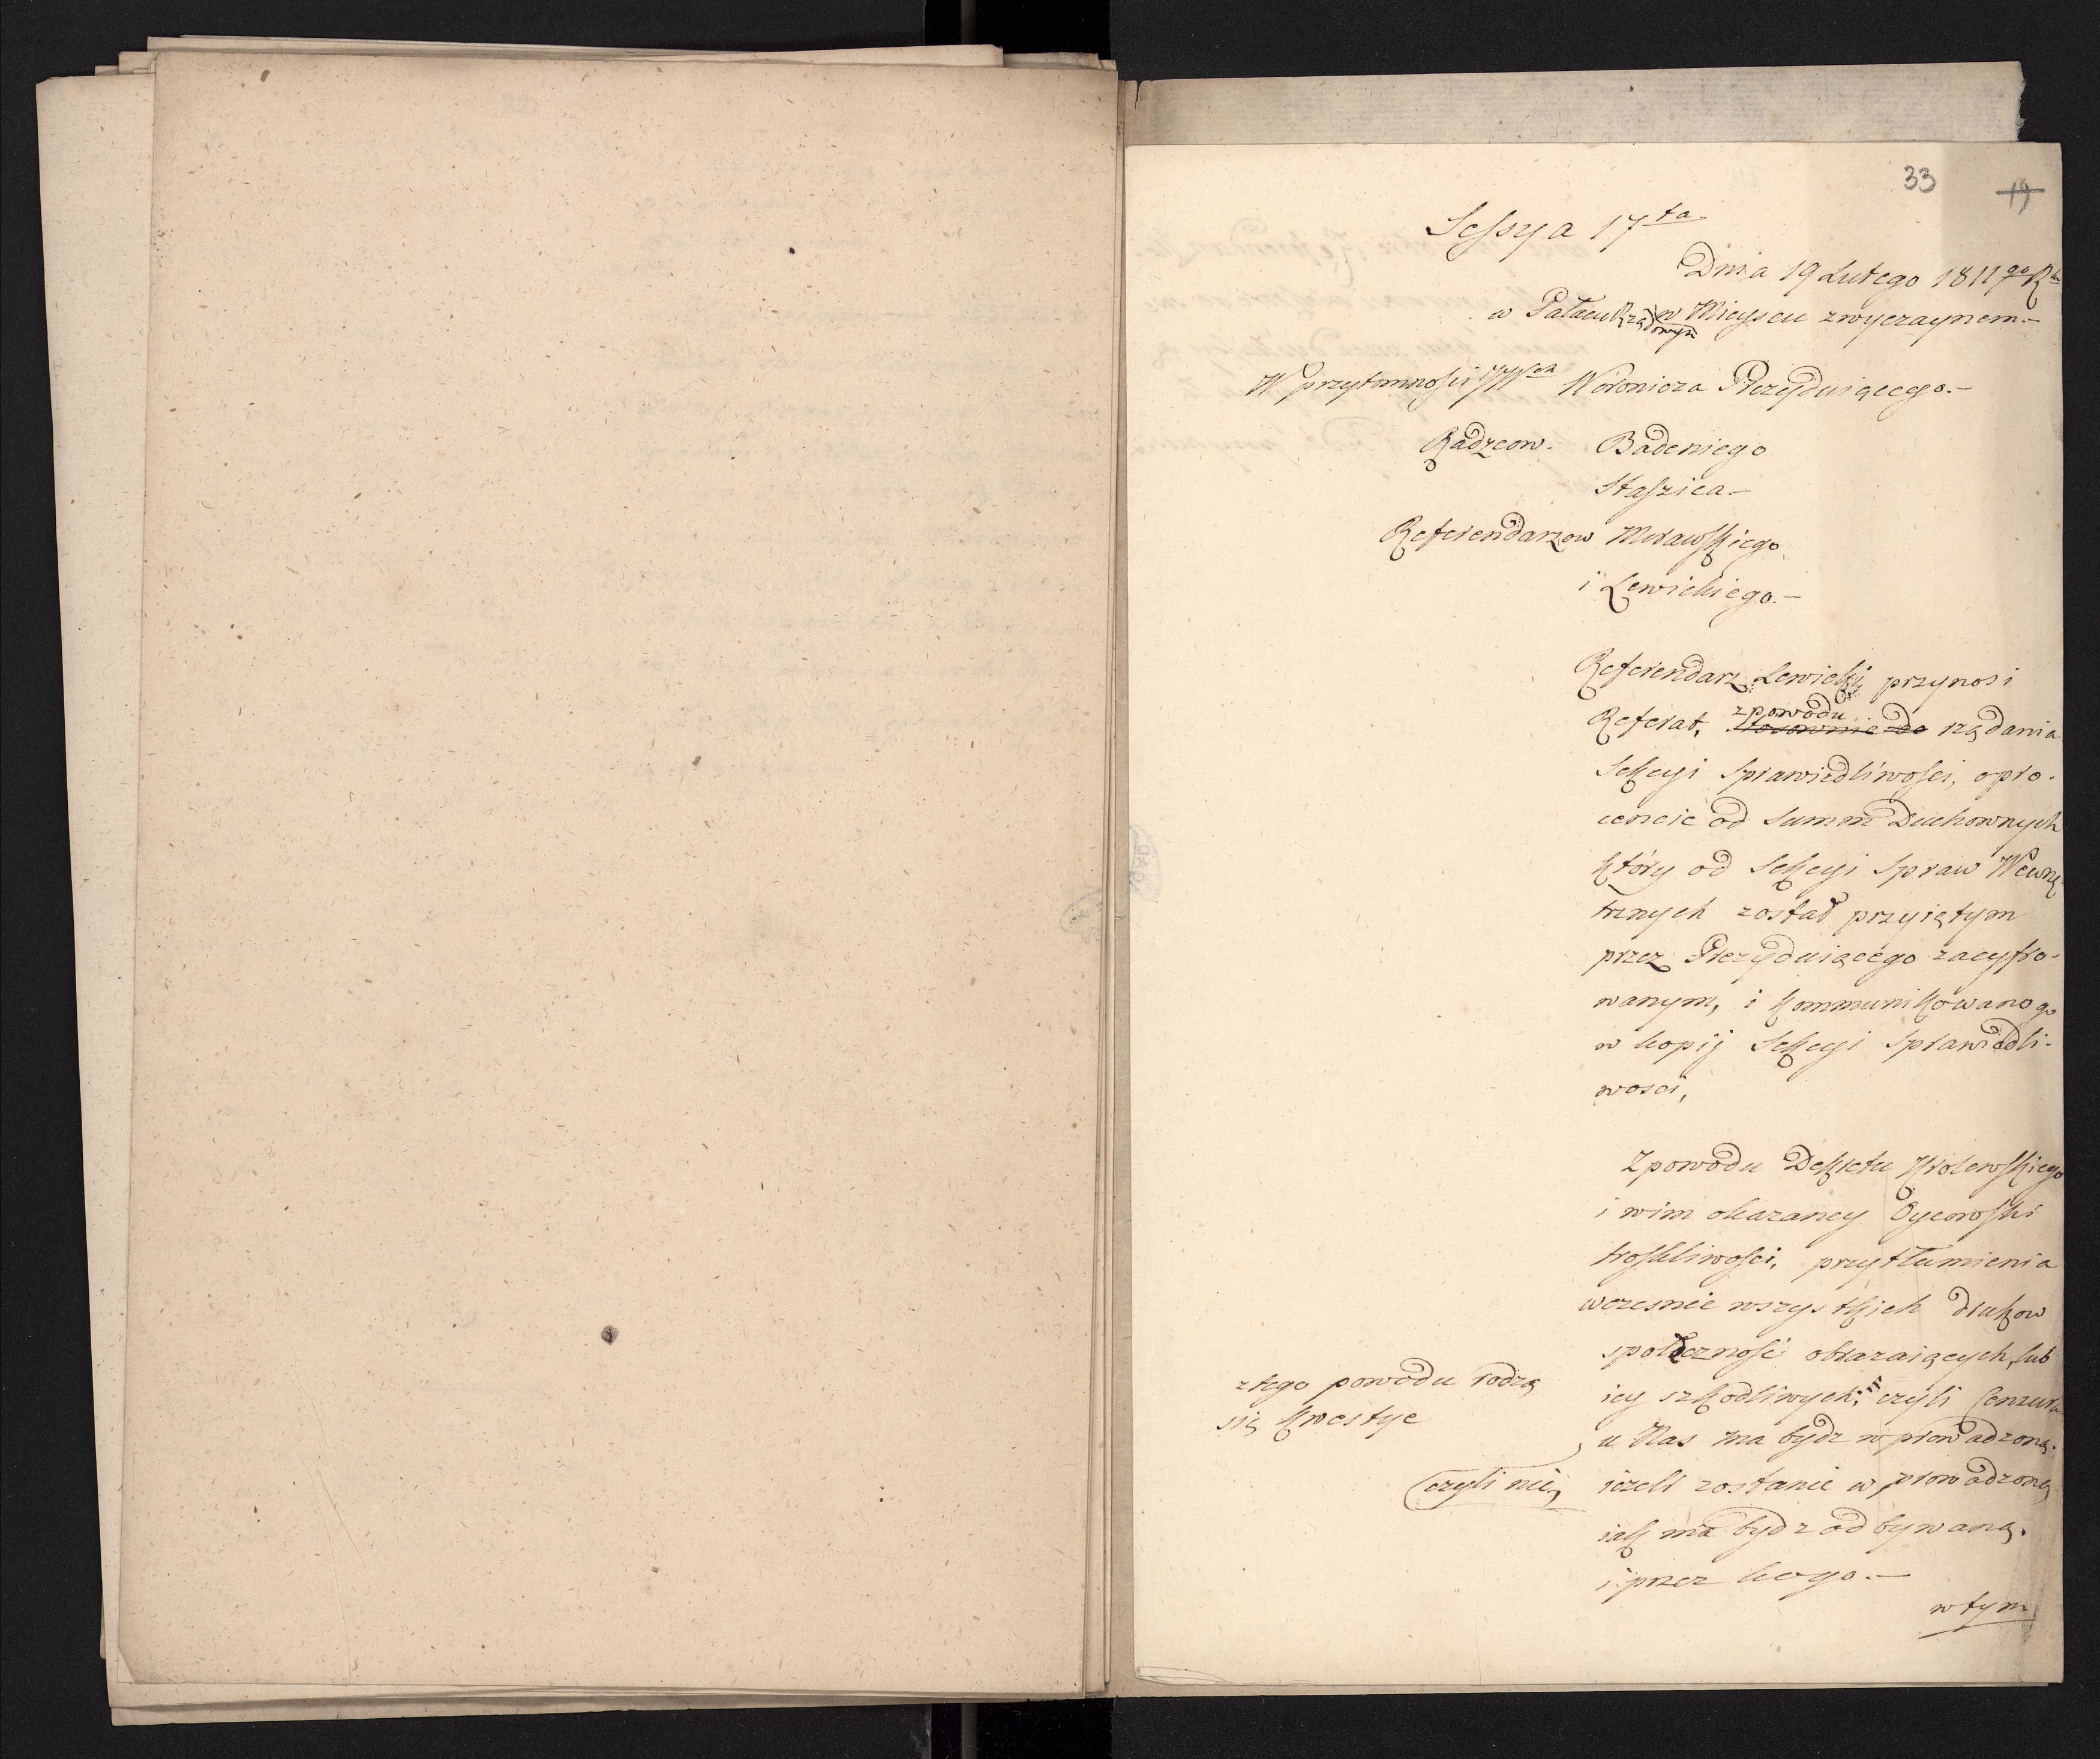 33
19
Sessya 17ta
Dnia 19 Lutego 1811go Rku
w Pałacu Rządowym w Mieyscu zwyczaynem.—
W przytomności JWWch Woronicza Prezyduiącego.—
Radzcow. Badeniego
Staszica—
Referendarzow Morawskiego
i Lewickiego.—
Referendarz Lewicki przynosi
Referat, z powodu stosownie do rządania
Sekcyi Sprawiedliwości, o pro-
cencie od Summ Duchownych
który od Sekcyi Spraw Wewnę-
trznych został przyiętym
przez Prezyduiącego zacyfro-
wanym, i kommunikowano go
w kopij Sekcyi Sprawiedli-
wosci,
Z powodu Dekretu Krolewskiego
i w im okazaney Oycowski
troskliwości, przytłumienia
wczesnie wszystkich drukow
społeczność obrazaiących, lub
iey szkodliwych; czyli Cenzura
z tego powodu rodzą
się kwestye
u Nas ma bydz wprowadzoną.
czyli nie, iezeli zostanie wprowadzoną
iak ma bydz odbywaną.
i przez kogo.—
w tym